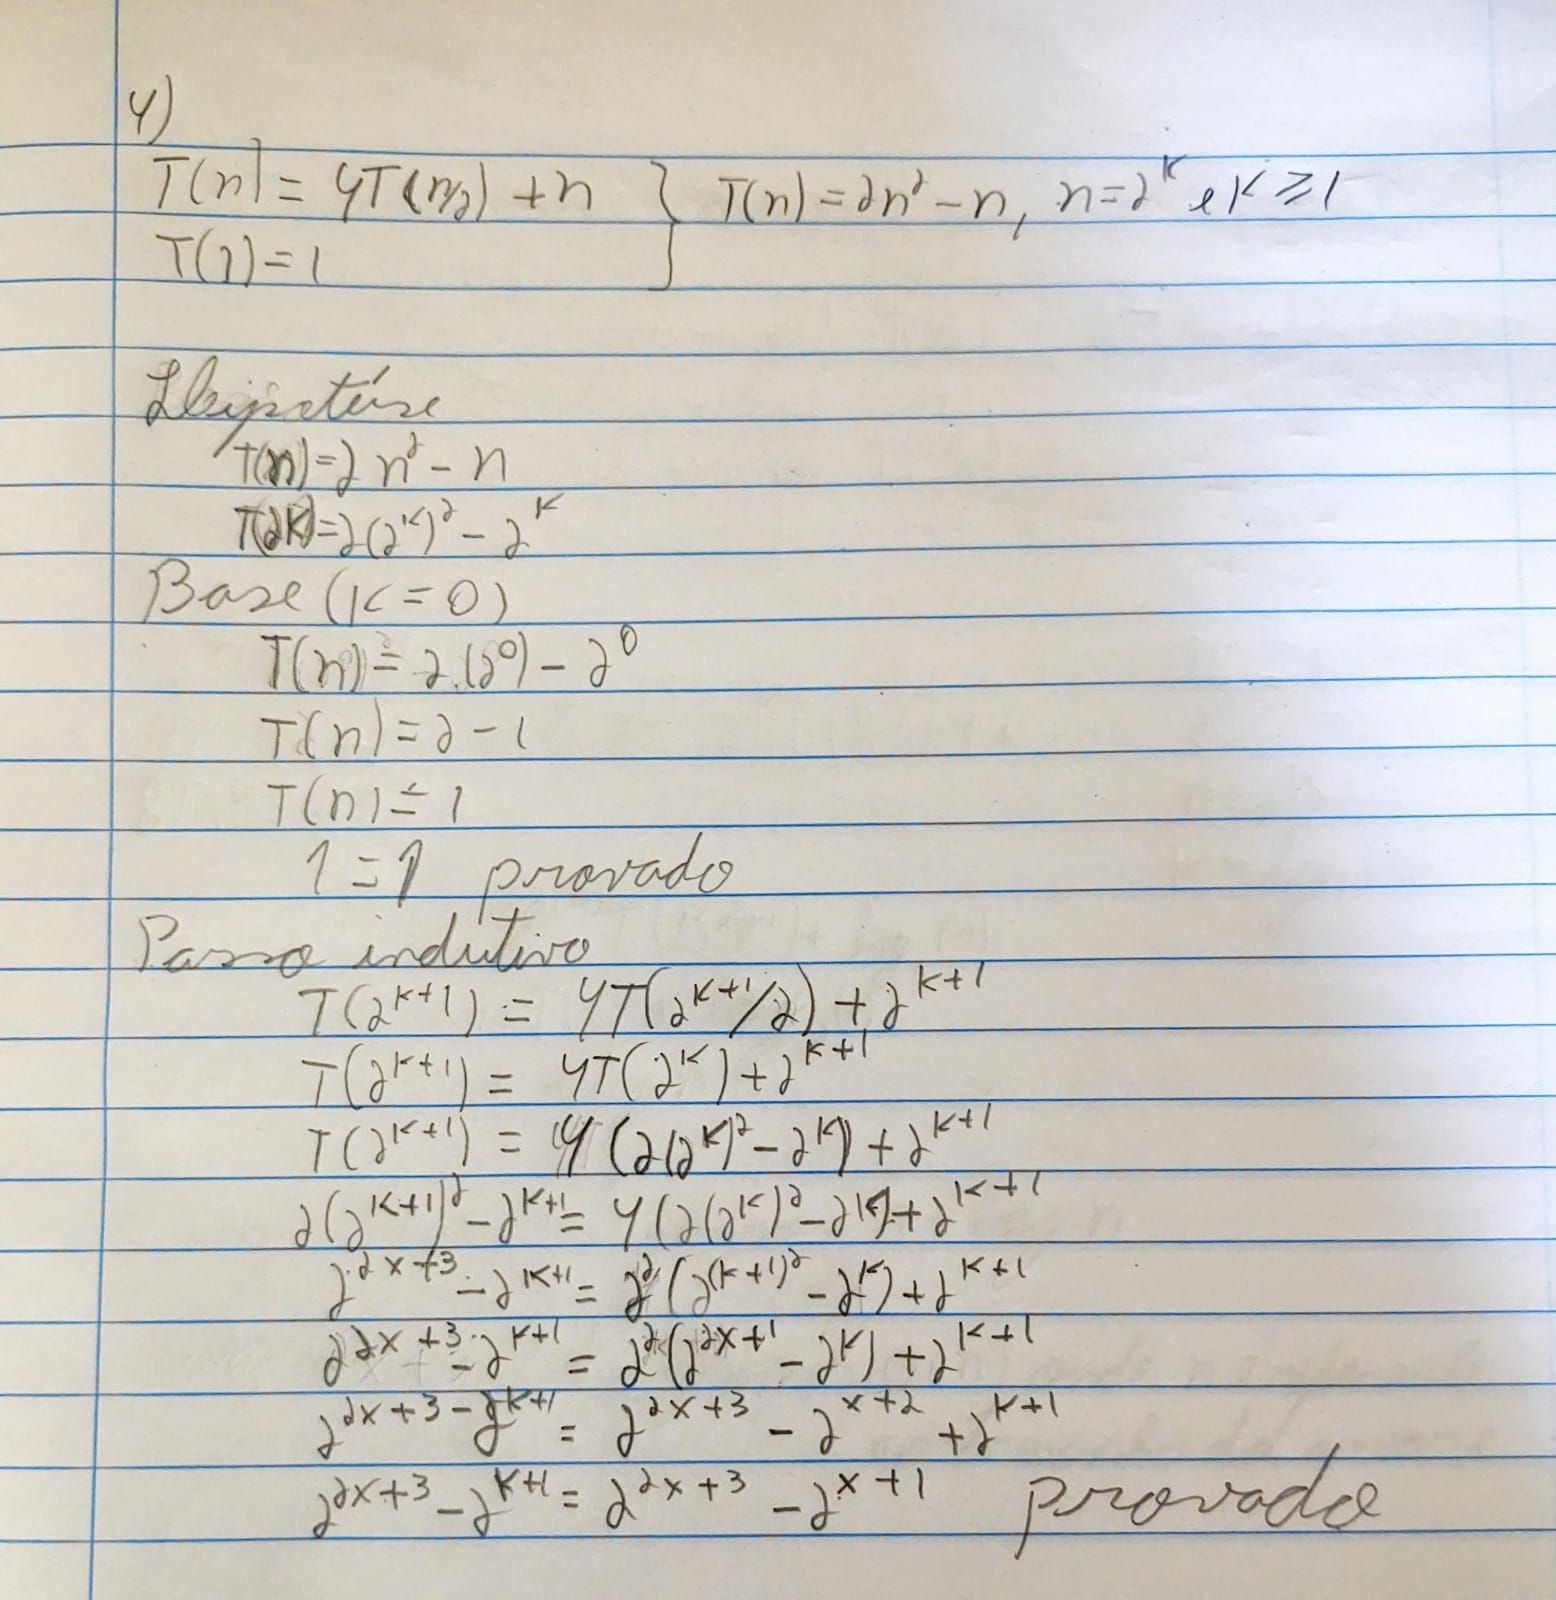 4)
T(n) = 4T(n/2) + n } T(n) = 2n² - n, n = 2^k e k ≥ 1
T(1) = 1
Hipotése
T(n) = 2n² - n
T(2k) = 2(2^k)² - 2^k
Base (k = 0)
T(n) = 2.(2^0) - 2^0
T(n) = 2 - 1
T(n) = 1
1 = 1 provado
Passo indutivo
T(2^{k+1}) = 4T(2^{k+1}/2) + 2^{k+1}
T(2^{k+1}) = 4T(2^k) + 2^{k+1}
T(2^{k+1}) = 4(2(2^k)² - 2^k) + 2^{k+1}
2(2^{k+1})² - 2^{k+1} = 4(2(2^k)² - 2^k) + 2^{k+1}
2^{2x+3} - 2^{k+1} = 2²(2^{(k+1)²} - 2^k) + 2^{k+1}
2^{2x+3} - 2^{k+1} = 2²(2^{2x+1} - 2^k) + 2^{k+1}
2^{2x+3} - 2^{k+1} = 2^{2x+3} - 2^{x+2} + 2^{k+1}
2^{2x+3} - 2^{k+1} = 2^{2x+3} - 2^{x+1} provado